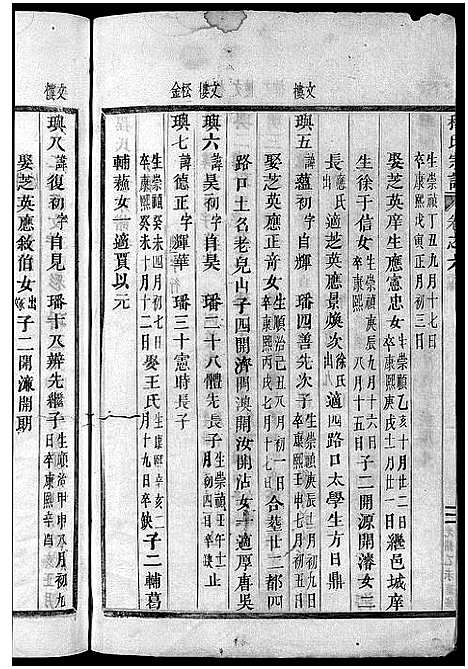 生崇禎丁丑九月十七日
卒康熙戊寅正月初三日
娶芝英庠生應憲忠女 生崇禎乙亥十月廿二
卒康熙庚戌十二月八 繼邑城庠
生徐于信女 生崇禎庚辰九月十六日
卒康熙 八月十五日 子二開源開濬女二
長 應氏出 適芝英應景煥次 徐氏出 適四路口太學生方日鼎
文樓
璵五 諱善初字 璠四善先次子 生崇禎庚辰三月初
卒康熙壬申七月
娶芝英應正奇女 生順治己丑八月初一日
卒康熙丙戌七月十七日 合葬廿二都四
路口土名老兒山子四開濟開澳開汝開沾女一適厚唐吳
文樓
璵六 諱昊初字 璠二十八體先長子 生崇禎壬午十二
卒康熙 止
松金
璵七 諱德正字輝華 璠三十憲時長子
生崇禎癸未四月初七日
卒康熙癸未十月十二日 娶王氏 生康熙辛亥二
月十九日卒缺 子二輔葛
輔蕕女一適賈以元
文樓
璵八 諱復初字自見 璠十八辨先繼子 生順治甲申八月初九
日卒康熙辛酉正月
娶芝英應敘伯女 子二開濂開期